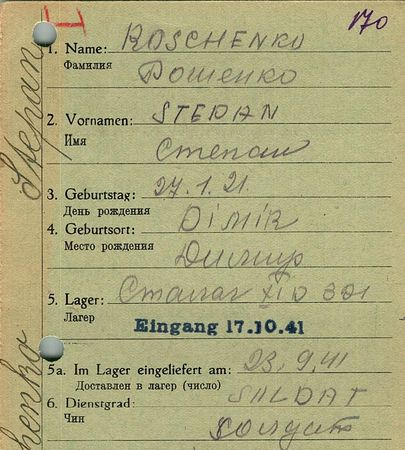 170
1. Name: ROSCHENKO
Фамилия Рошенко
2. Vornamen: STEPAN
Имя Степан
3. Geburtstag: 27.1.21.
День рождения
4. Geburtsort: DiMiR
Место рождения Димир
5. Lager: Сталаг XI D 321
Лагер
Eingang 17.10.41
5a. Im Lager eingeliefert am: 23.9.41
Доставлен в лагер (число)
6. Dienstgrad: SOLDAT
Чин Солдат
Stepan
henko